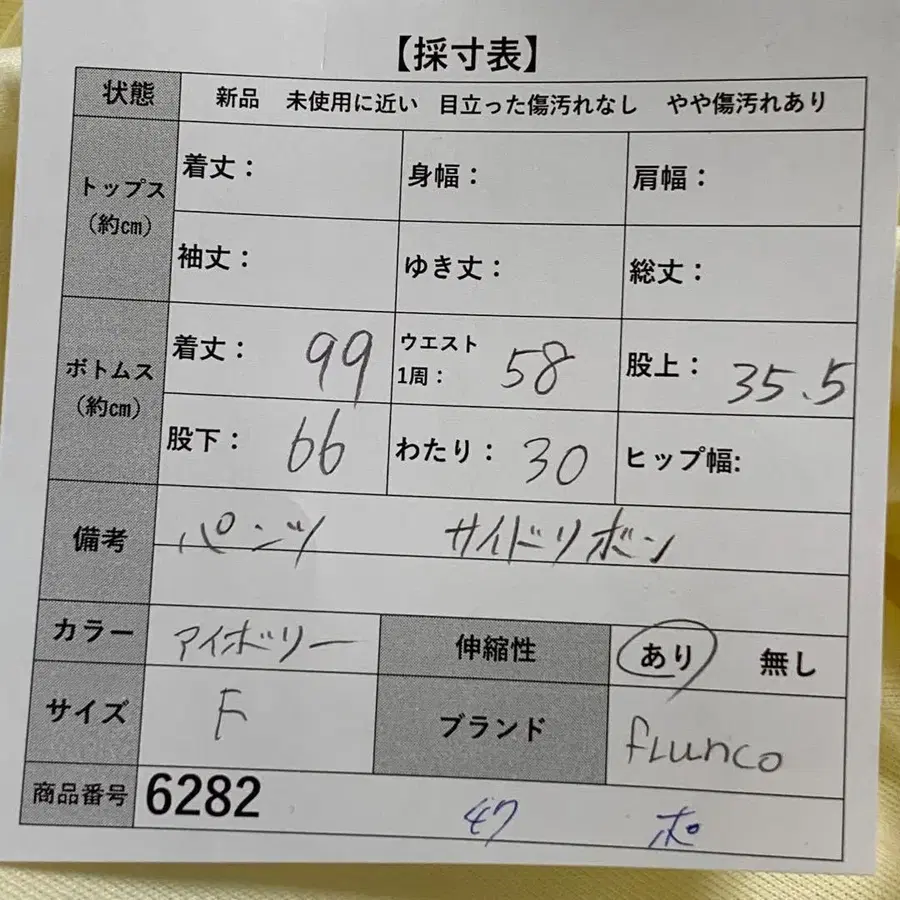 【採寸表】
状態 新品 未使用に近い 目立った傷汚れなし やや傷汚れあり
トップス (約cm)
着丈： 身幅： 肩幅：
袖丈： ゆき丈： 総丈：
ボトムス (約cm)
着丈： 99 ウエスト1周： 58 股上： 35.5
股下： 66 わたり： 30 ヒップ幅:
備考 パンツ サイドリボン
カラー アイボリー 伸縮性 あり 無し
サイズ F ブランド fLunco
商品番号 6282 ポ